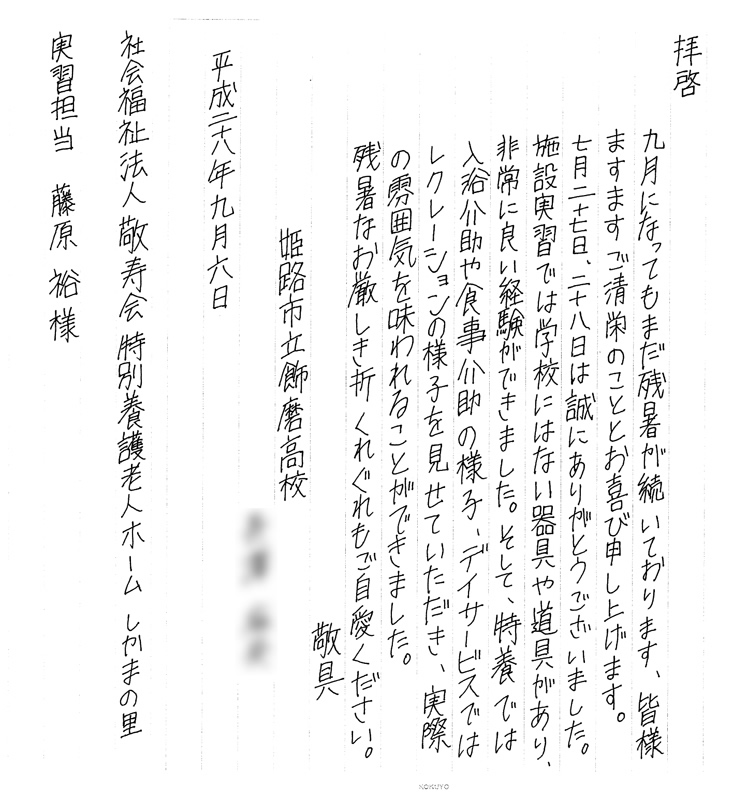 拝啓
九月になってもまだ残暑が続いております、皆様
ますますご清栄のこととお喜び申し上げます。
七月二十七日、二十八日は誠にありがとうございました。
施設実習では学校にはない器具や道具があり、
非常に良い経験ができました。そして、特養では
入浴介助や食事介助の様子、デイサービスでは
レクレーションの様子を見せていただき、実際
の雰囲気を味われることができました。
残暑なお厳しき折くれぐれもご自愛ください。
敬具
姫路市立飾磨高校
平成二十八年九月六日
社会福祉法人 敬寿会 特別養護老人ホーム しかまの里
実習担当 藤原 裕 様
KOKUYO